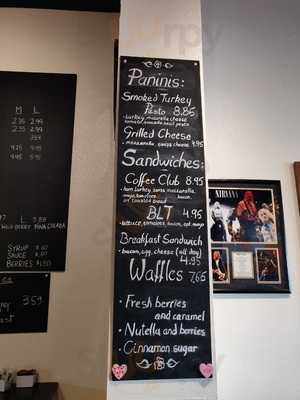 Paninis:
Smoked Turkey
Pesto 8.85
- turkey, mozzarella cheese
tomato, pesto
Grilled Cheese
- mozzarella, swiss cheese 4.95
Sandwiches:
Coffee Club 8.95
- ham, turkey, swiss, mozzarella,
mayo, tomatoes, bacon,
on toasted bread
BLT 4.95
- lettuce, tomatoes, bacon, opt. mayo
Breakfast Sandwich
- bacon, egg, cheese (all day)
4.95
Waffles
7.65
• Fresh berries
and caramel
• Nutella and berries
• Cinnamon sugar
M L
2.35 2.99
2.35 2.99
3.59
4.25 4.95
4.25 4.95
L 5.88
WILD BERRY PINA COLADA
SYRUP
SAUCE
BERRIES
3.59
NIRVANA